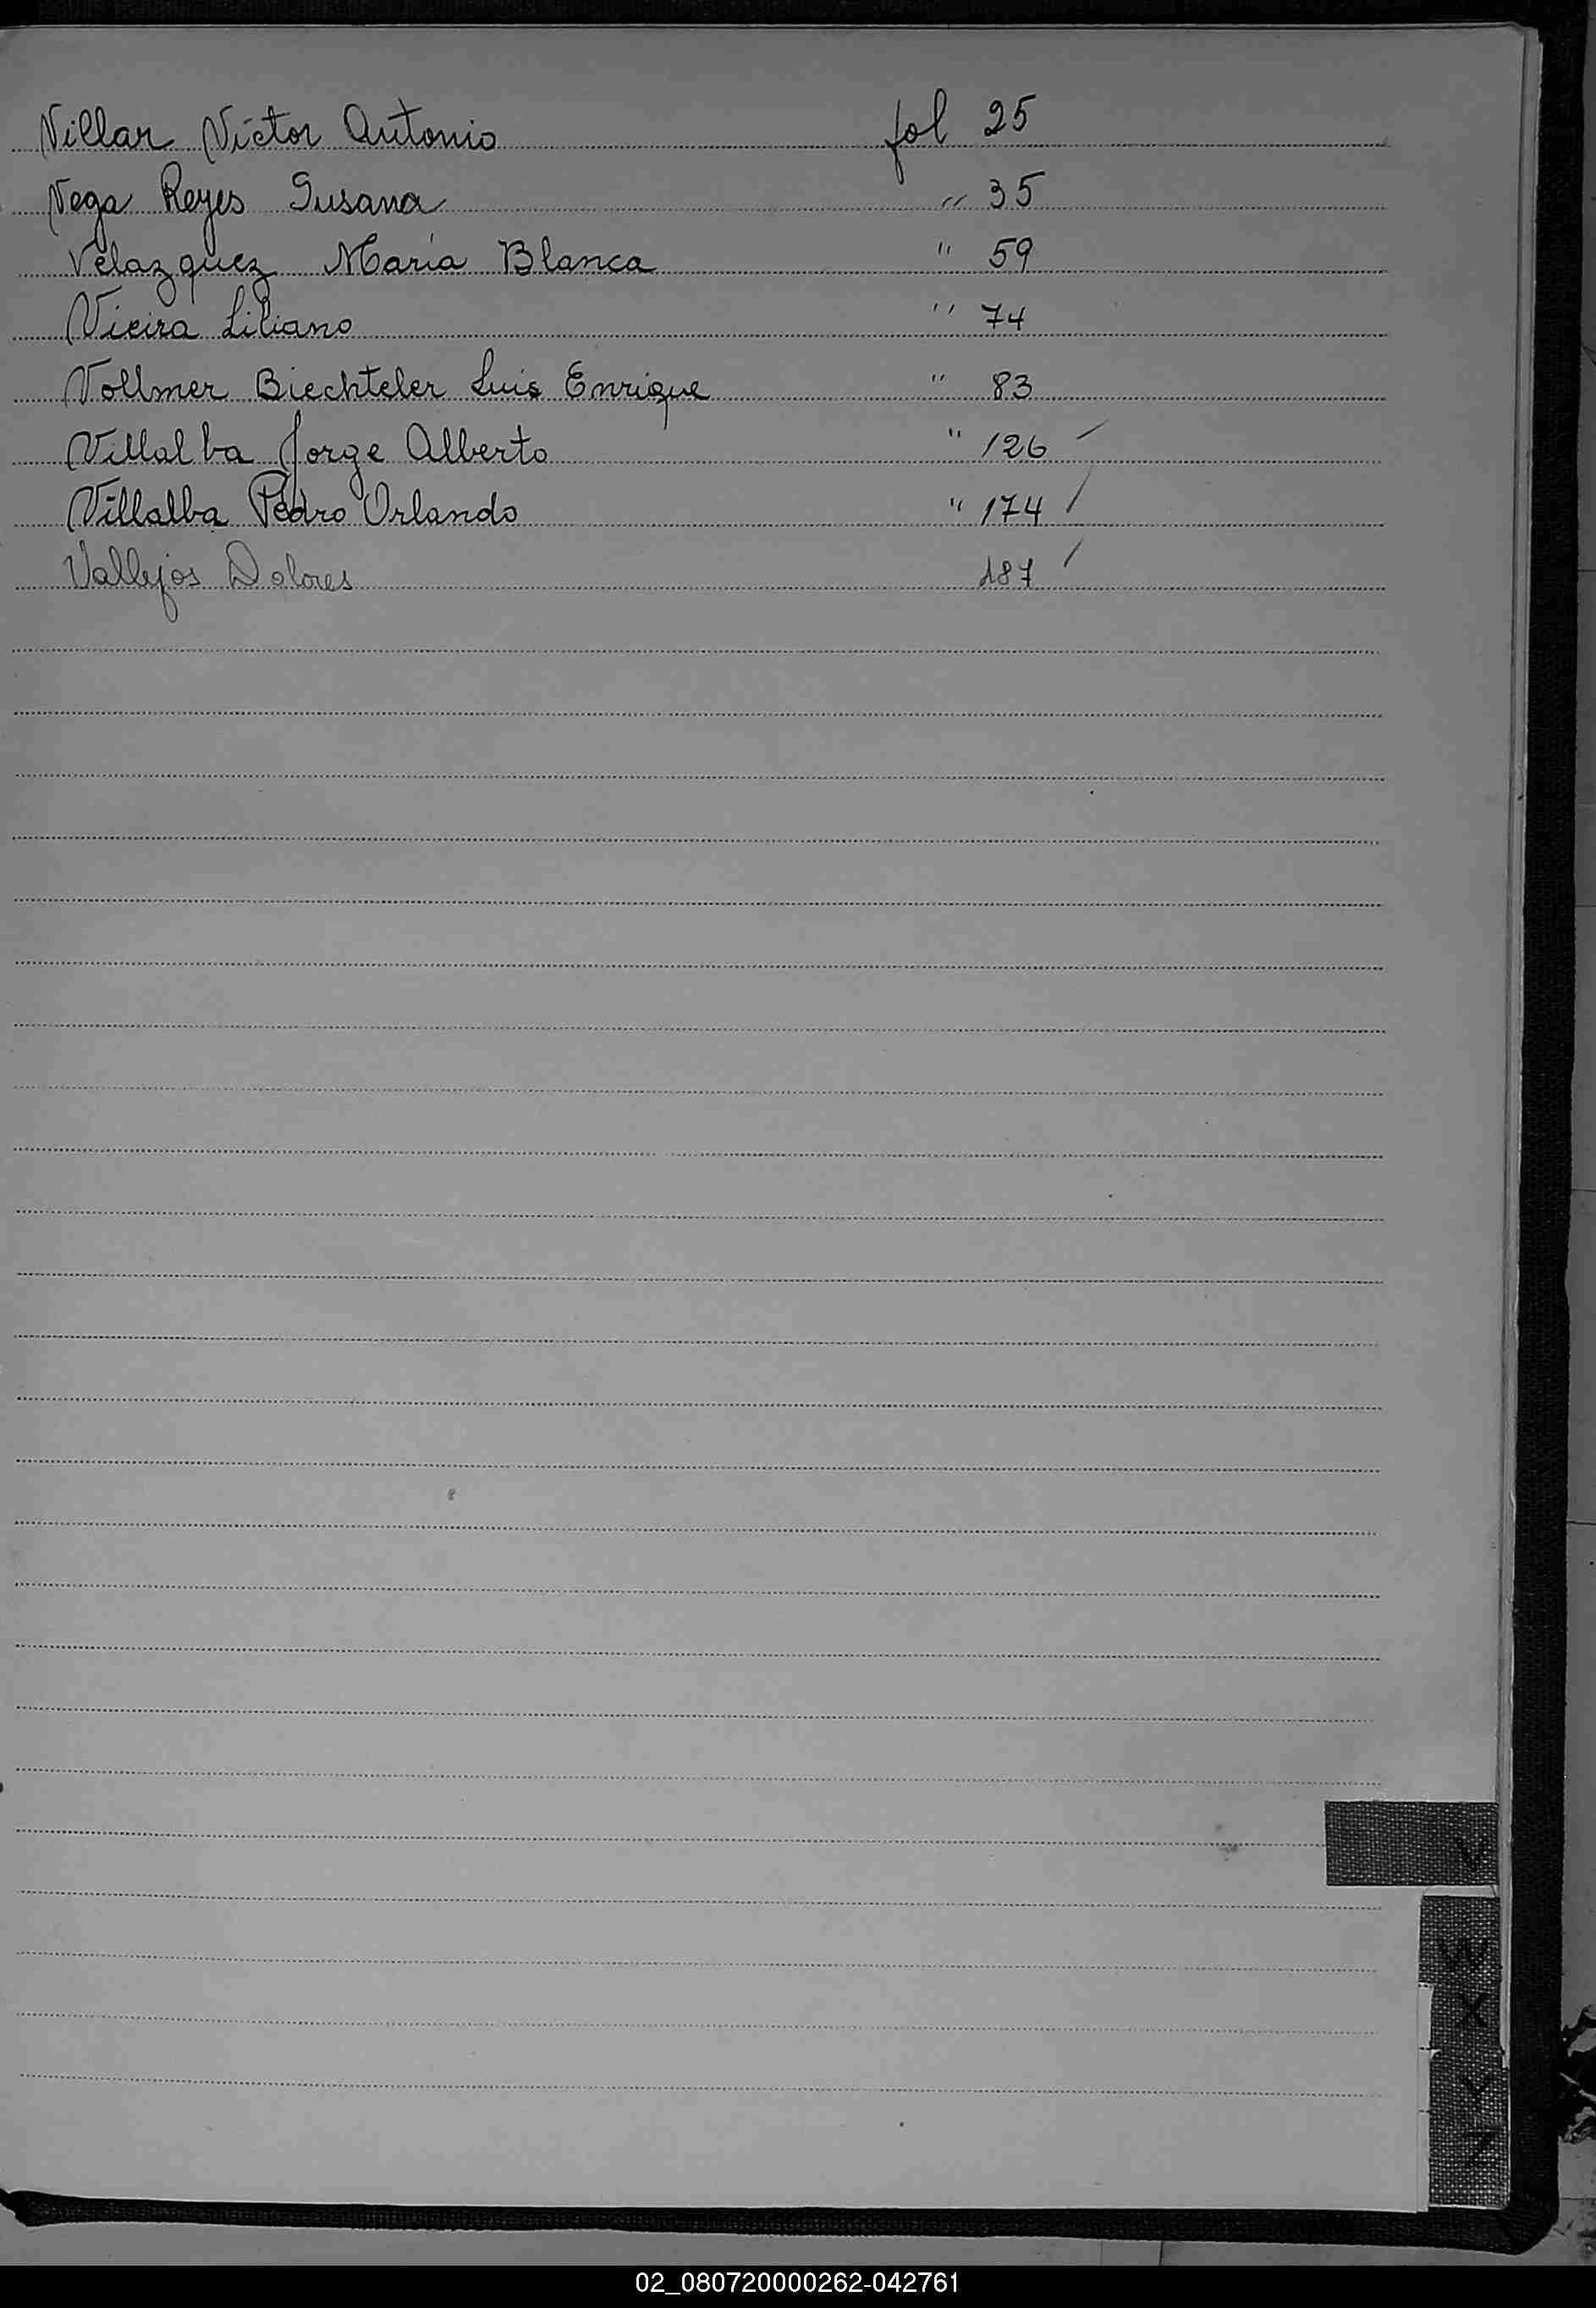 Villar Víctor Antonio fol 25
Vega Reyes Susana " 35
Velazquez María Blanca " 59
Vieira Liliano " 74
Vollmer Biechteler Luis Enrique " 83
Villalba Jorge Alberto " 126
Villalba Pedro Orlando " 174
Vallejos Dolores 187
V
W
X
Y
Z
02_080720000262-042761